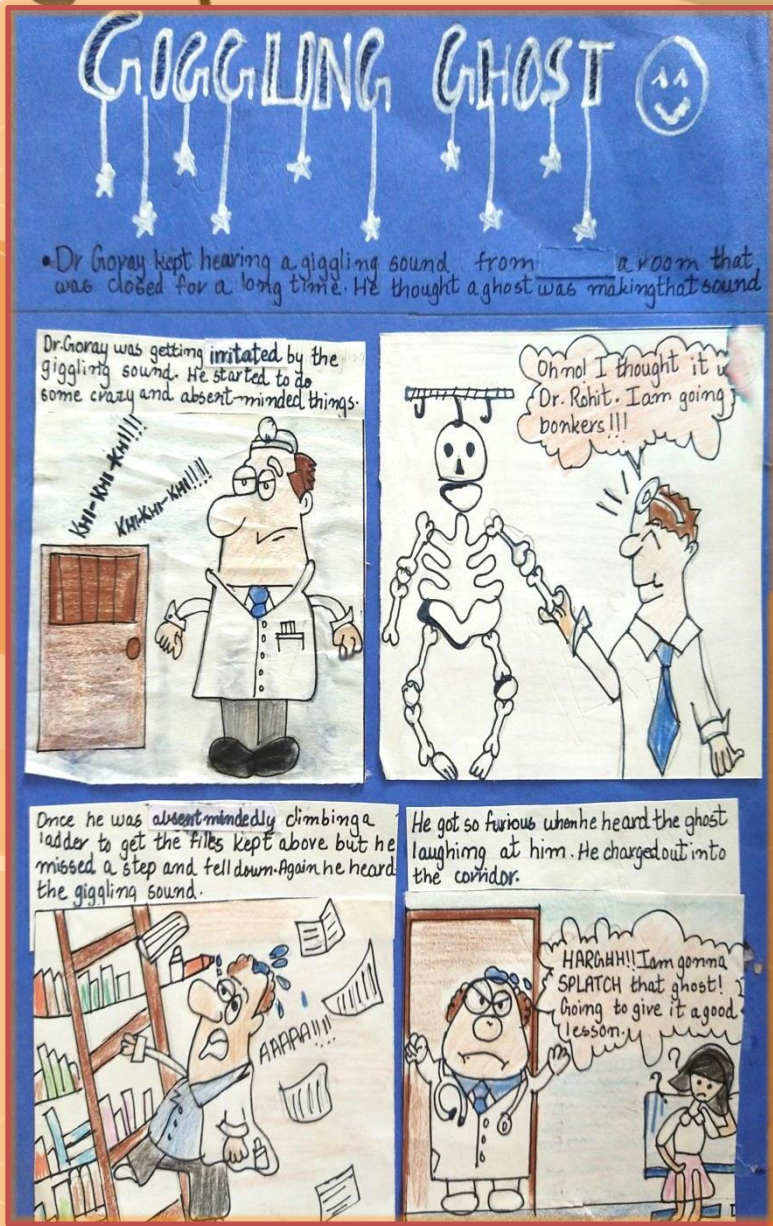 GIGGLING GHOST
• Dr Goray kept hearing a giggling sound from a room that
was closed for a long time. He thought a ghost was making that sound
Dr. Goray was getting irritated by the
giggling sound. He started to do
some crazy and absent-minded things.
KHI-KHI-KHI!!!!
KHI-KHI-KHI!!!!
Oh no! I thought it
Dr. Rohit. I am going
bonkers!!!
Once he was absentmindedly climbing a
ladder to get the files kept above but he
missed a step and fell down. Again he heard
the giggling sound.
AAAAA!!!!
He got so furious when he heard the ghost
laughing at him. He charged out into
the corridor.
HARGHH!! I am gonna
SPLATCH that ghost!
Going to give it a good
lesson.
? ?